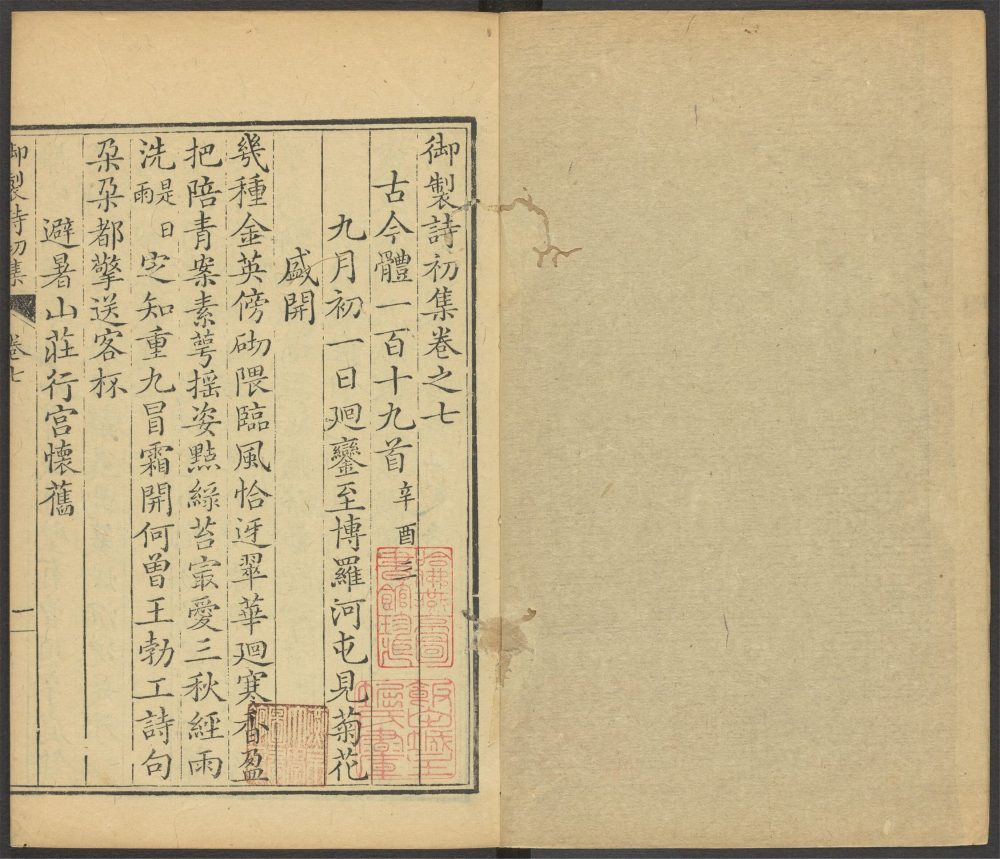 御製詩初集卷之七
古今體一百十九首 辛酉三
九月初一日廻鑾至博羅河屯見菊花
盛開
幾種金英傍砌隈臨風恰迓翠華廻寒香盈
把陪青案素萼揺姿㸃綠苔㝡愛三秋經雨
洗是日雨定知重九冒霜開何曽王勃工詩句
朶朶都擎送客杯
避暑山莊行宫懷舊
御製詩初集 卷七 一
哈佛燕京圖
書館珍藏